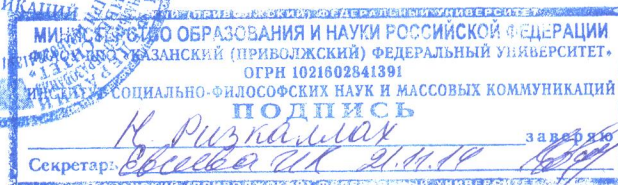 ИКАЦИЙ
(ПРИВОЛЖСКИЙ) ФЕДЕРАЛЬНЫЙ УНИВЕРСИТЕТ
МИНИСТЕРСТВО ОБРАЗОВАНИЯ И НАУКИ РОССИЙСКОЙ ФЕДЕРАЦИИ
КАЗАНСКИЙ (ПРИВОЛЖСКИЙ) ФЕДЕРАЛЬНЫЙ УНИВЕРСИТЕТ
ОГРН 1021602841391
ИНСТИТУТ СОЦИАЛЬНО-ФИЛОСОФСКИХ НАУК И МАССОВЫХ КОММУНИКАЦИЙ
ПОДПИСЬ
Н. Ризкаллах заверяю
Секретарь Евсеева 21.11.14